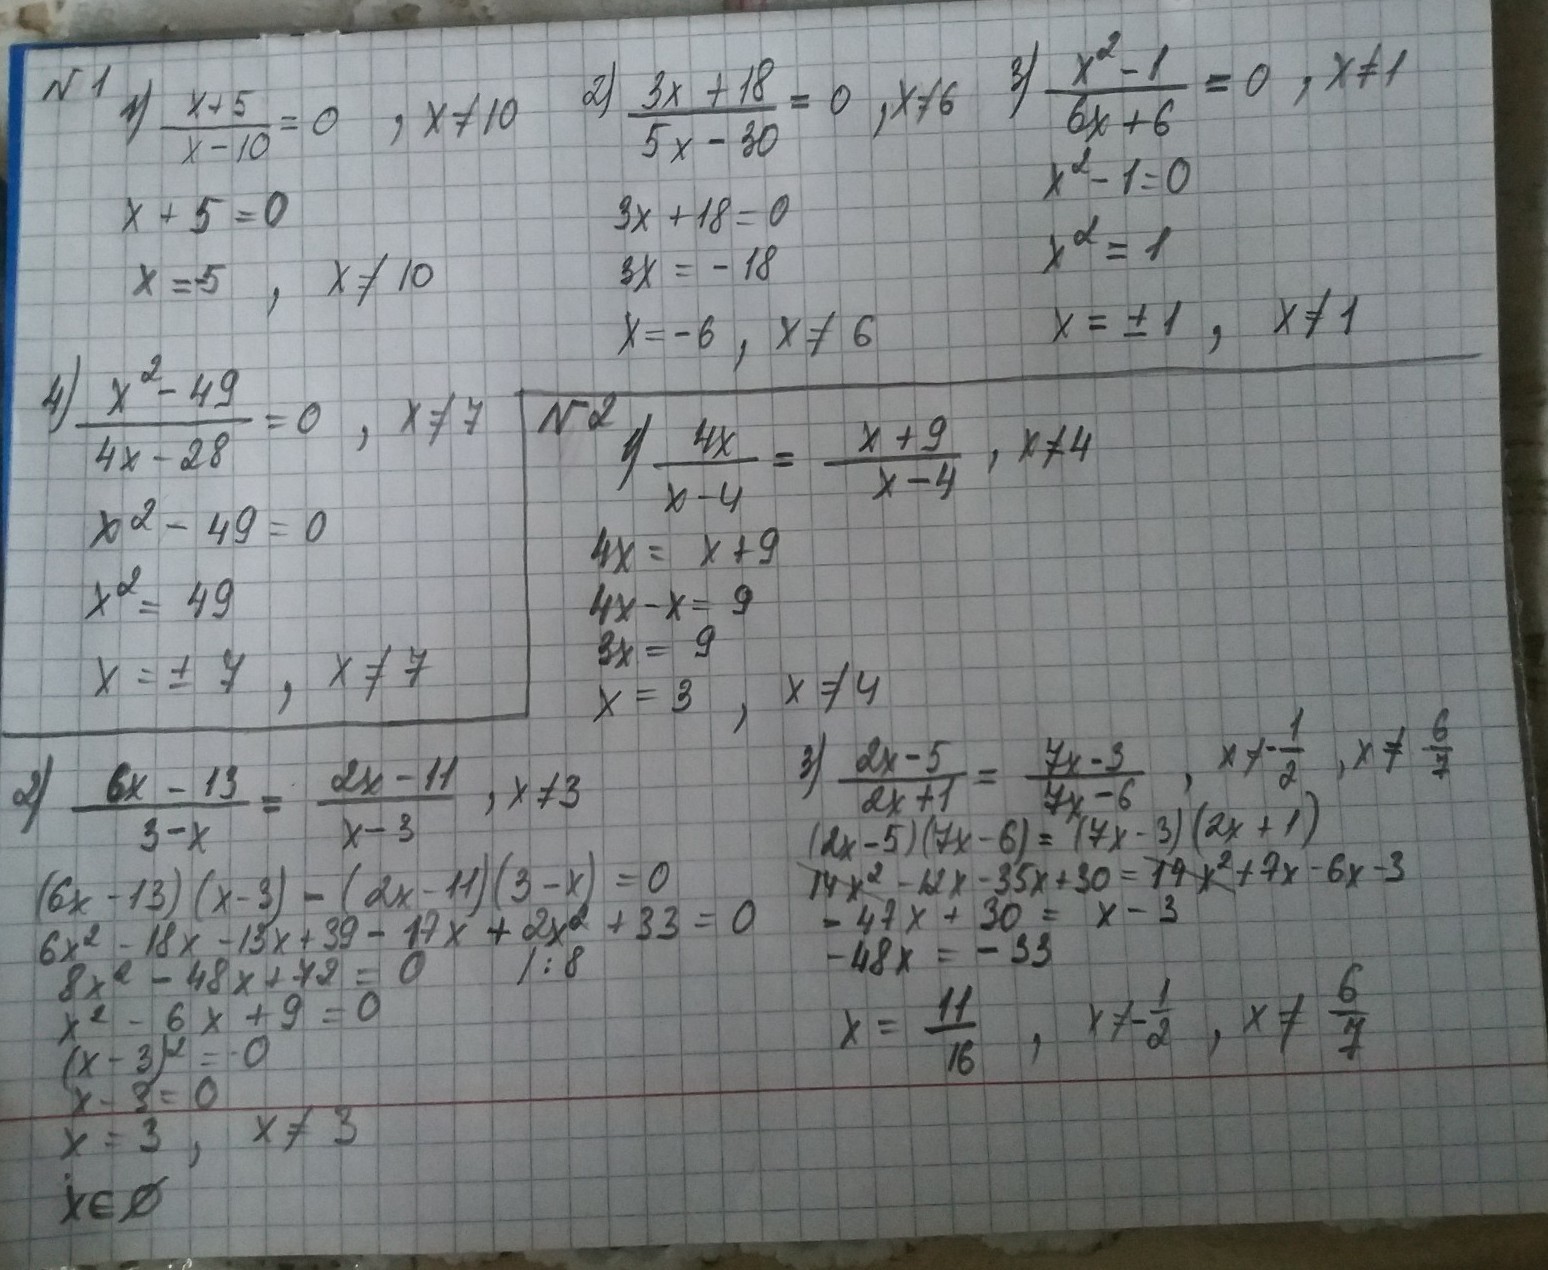 N1
1) (x+5)/(x-10) = 0 , x≠10
x + 5 = 0
x = -5 , x≠10
2) (3x+18)/(5x-30) = 0 , x≠6
3x + 18 = 0
3x = -18
x = -6 , x≠6
3) (x²-1)/(6x+6) = 0 , x≠1
x² - 1 = 0
x² = 1
x = ±1 , x≠1
4) (x²-49)/(4x-28) = 0 , x≠7
x² - 49 = 0
x² = 49
x = ±7 , x≠7
N2
1) 4x/(x-4) = (x+9)/(x-4) , x≠4
4x = x+9
4x-x = 9
3x = 9
x = 3 , x≠4
2) (6x-13)/(3-x) = (2x-11)/(x-3) , x≠3
(6x-13)(x-3) - (2x-11)(3-x) = 0
6x² - 18x - 13x + 39 - 17x + 2x² + 33 = 0
8x² - 48x + 72 = 0 /:8
x² - 6x + 9 = 0
(x-3)² = 0
x-3 = 0
x = 3 , x≠3
x∈∅
3) (2x-5)/(2x+1) = (7x-3)/(7x-6) , x≠-1/2 , x≠6/7
(2x-5)(7x-6) = (7x-3)(2x+1)
14x² - 12x - 35x + 30 = 14x² + 7x - 6x - 3
-47x + 30 = x - 3
-48x = -33
x = 11/16 , x≠-1/2 , x≠6/7